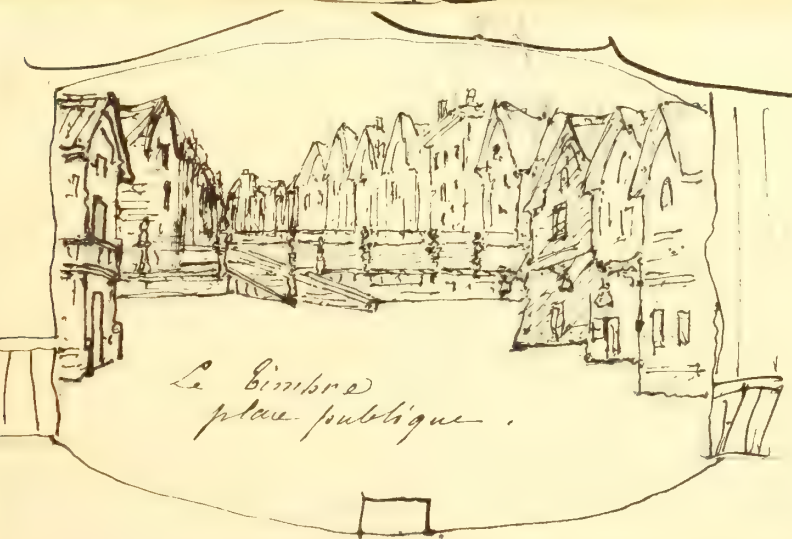 Le Timbre
place publique .